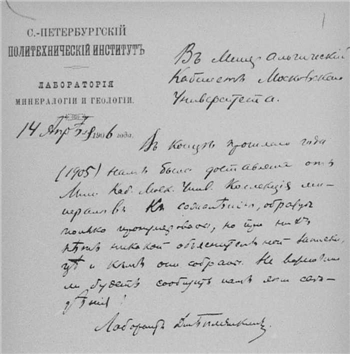 С.-ПЕТЕРБУРГСКІЙ
ПОЛИТЕХНИЧЕСКІЙ ИНСТИТУТЪ
ЛАБОРАТОРІЯ
МИНЕРАЛОГІИ И ГЕОЛОГІИ.
14 1906 года.
Въ Минералогическій
Кабинетъ Московскаго
Университета.
Въ концѣ прошлаго года
(1905) намъ была доставлена отъ
Мин. Каб. Моск. Унив. Коллекція ми-
нераловъ. Къ сожалѣнію, образцы
только пронумерованы, но при нихъ
нѣтъ никакой объяснительной записки,
гдѣ и кѣмъ они собраны. Не
ли будетъ сообщить намъ эти свѣ-
дѣнія!
Лаборантъ